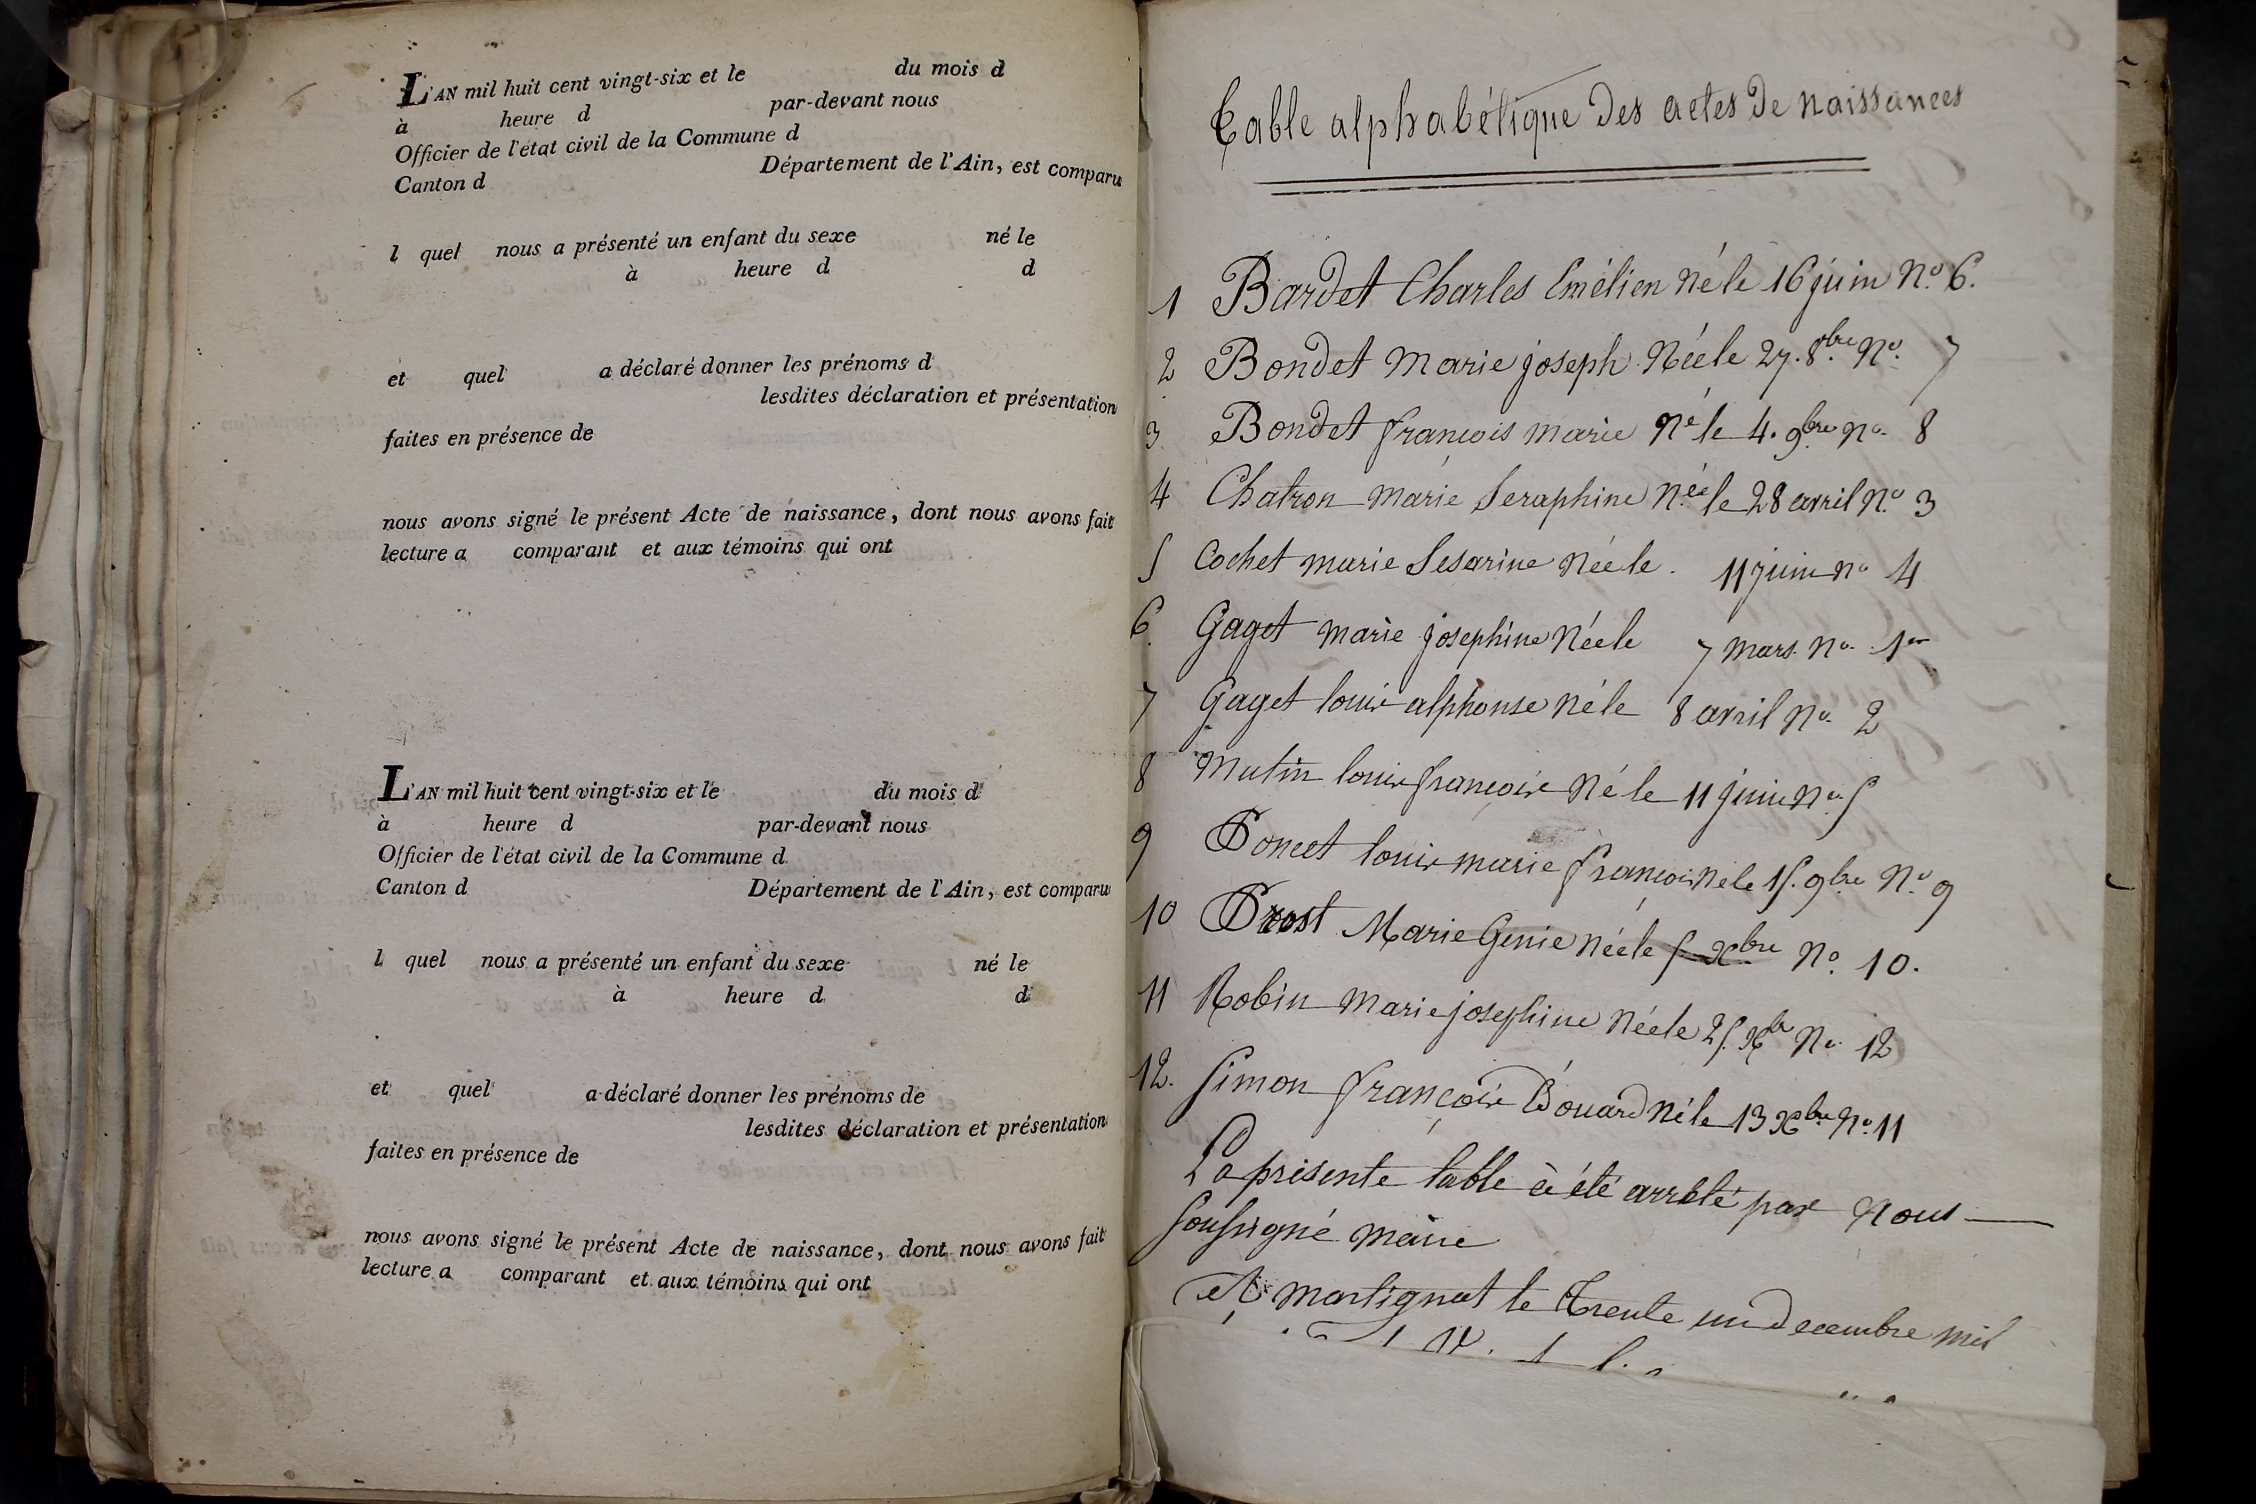 L'AN mil huit cent vingt-six et le du mois d
à heure d par-devant nous
Officier de l'état civil de la Commune d
Canton d Département de l'Ain, est comparu
l quel nous a présenté un enfant du sexe né le
à heure d d
et quel a déclaré donner les prénoms d
lesdites déclaration et présentation
faites en présence de
nous avons signé le présent Acte de naissance, dont nous avons fait
lecture a comparant et aux témoins qui ont
L'AN mil huit cent vingt-six et le du mois d
à heure d par-devant nous
Officier de l'état civil de la Commune d
Canton d Département de l'Ain, est comparu
l quel nous a présenté un enfant du sexe né le
à heure d d
et quel a déclaré donner les prénoms de
lesdites déclaration et présentation
faites en présence de
nous avons signé le présent Acte de naissance, dont nous avons fait
lecture a comparant et aux témoins qui ont
Table alphabétique des actes de naissances
1 Bardet Charles Emélien Né le 16 juin N.o 6.
2 Bondet marie joseph Née le 27. 8bre No. 7
3 Bondet françois marie Né le 4. 9bre No. 8
4 Chatron marie Seraphine Née le 28 avril No. 3
5 Cochet marie Sesarine Née le. 11 juin No 4
6 Gaget marie josephine Née le 7 mars No. 1er
7 Gaget louis alphonse Né le 8 avril No. 2
8 Mutin louis françois Né le 11 juin No. 5
9 Poncet louis marie françois Né le 15. 9bre N.o 9
10 Prost Marie Genie Née le 5 Xbre No. 10.
11 Robin marie josephine Née le 25. Xbr No. 12
12. Simon françois Edouard Né le 13 Xbre No. 11
La présente table à été arrêté par Nous
Soussigné maire
A martignat le Trente un decembre mil